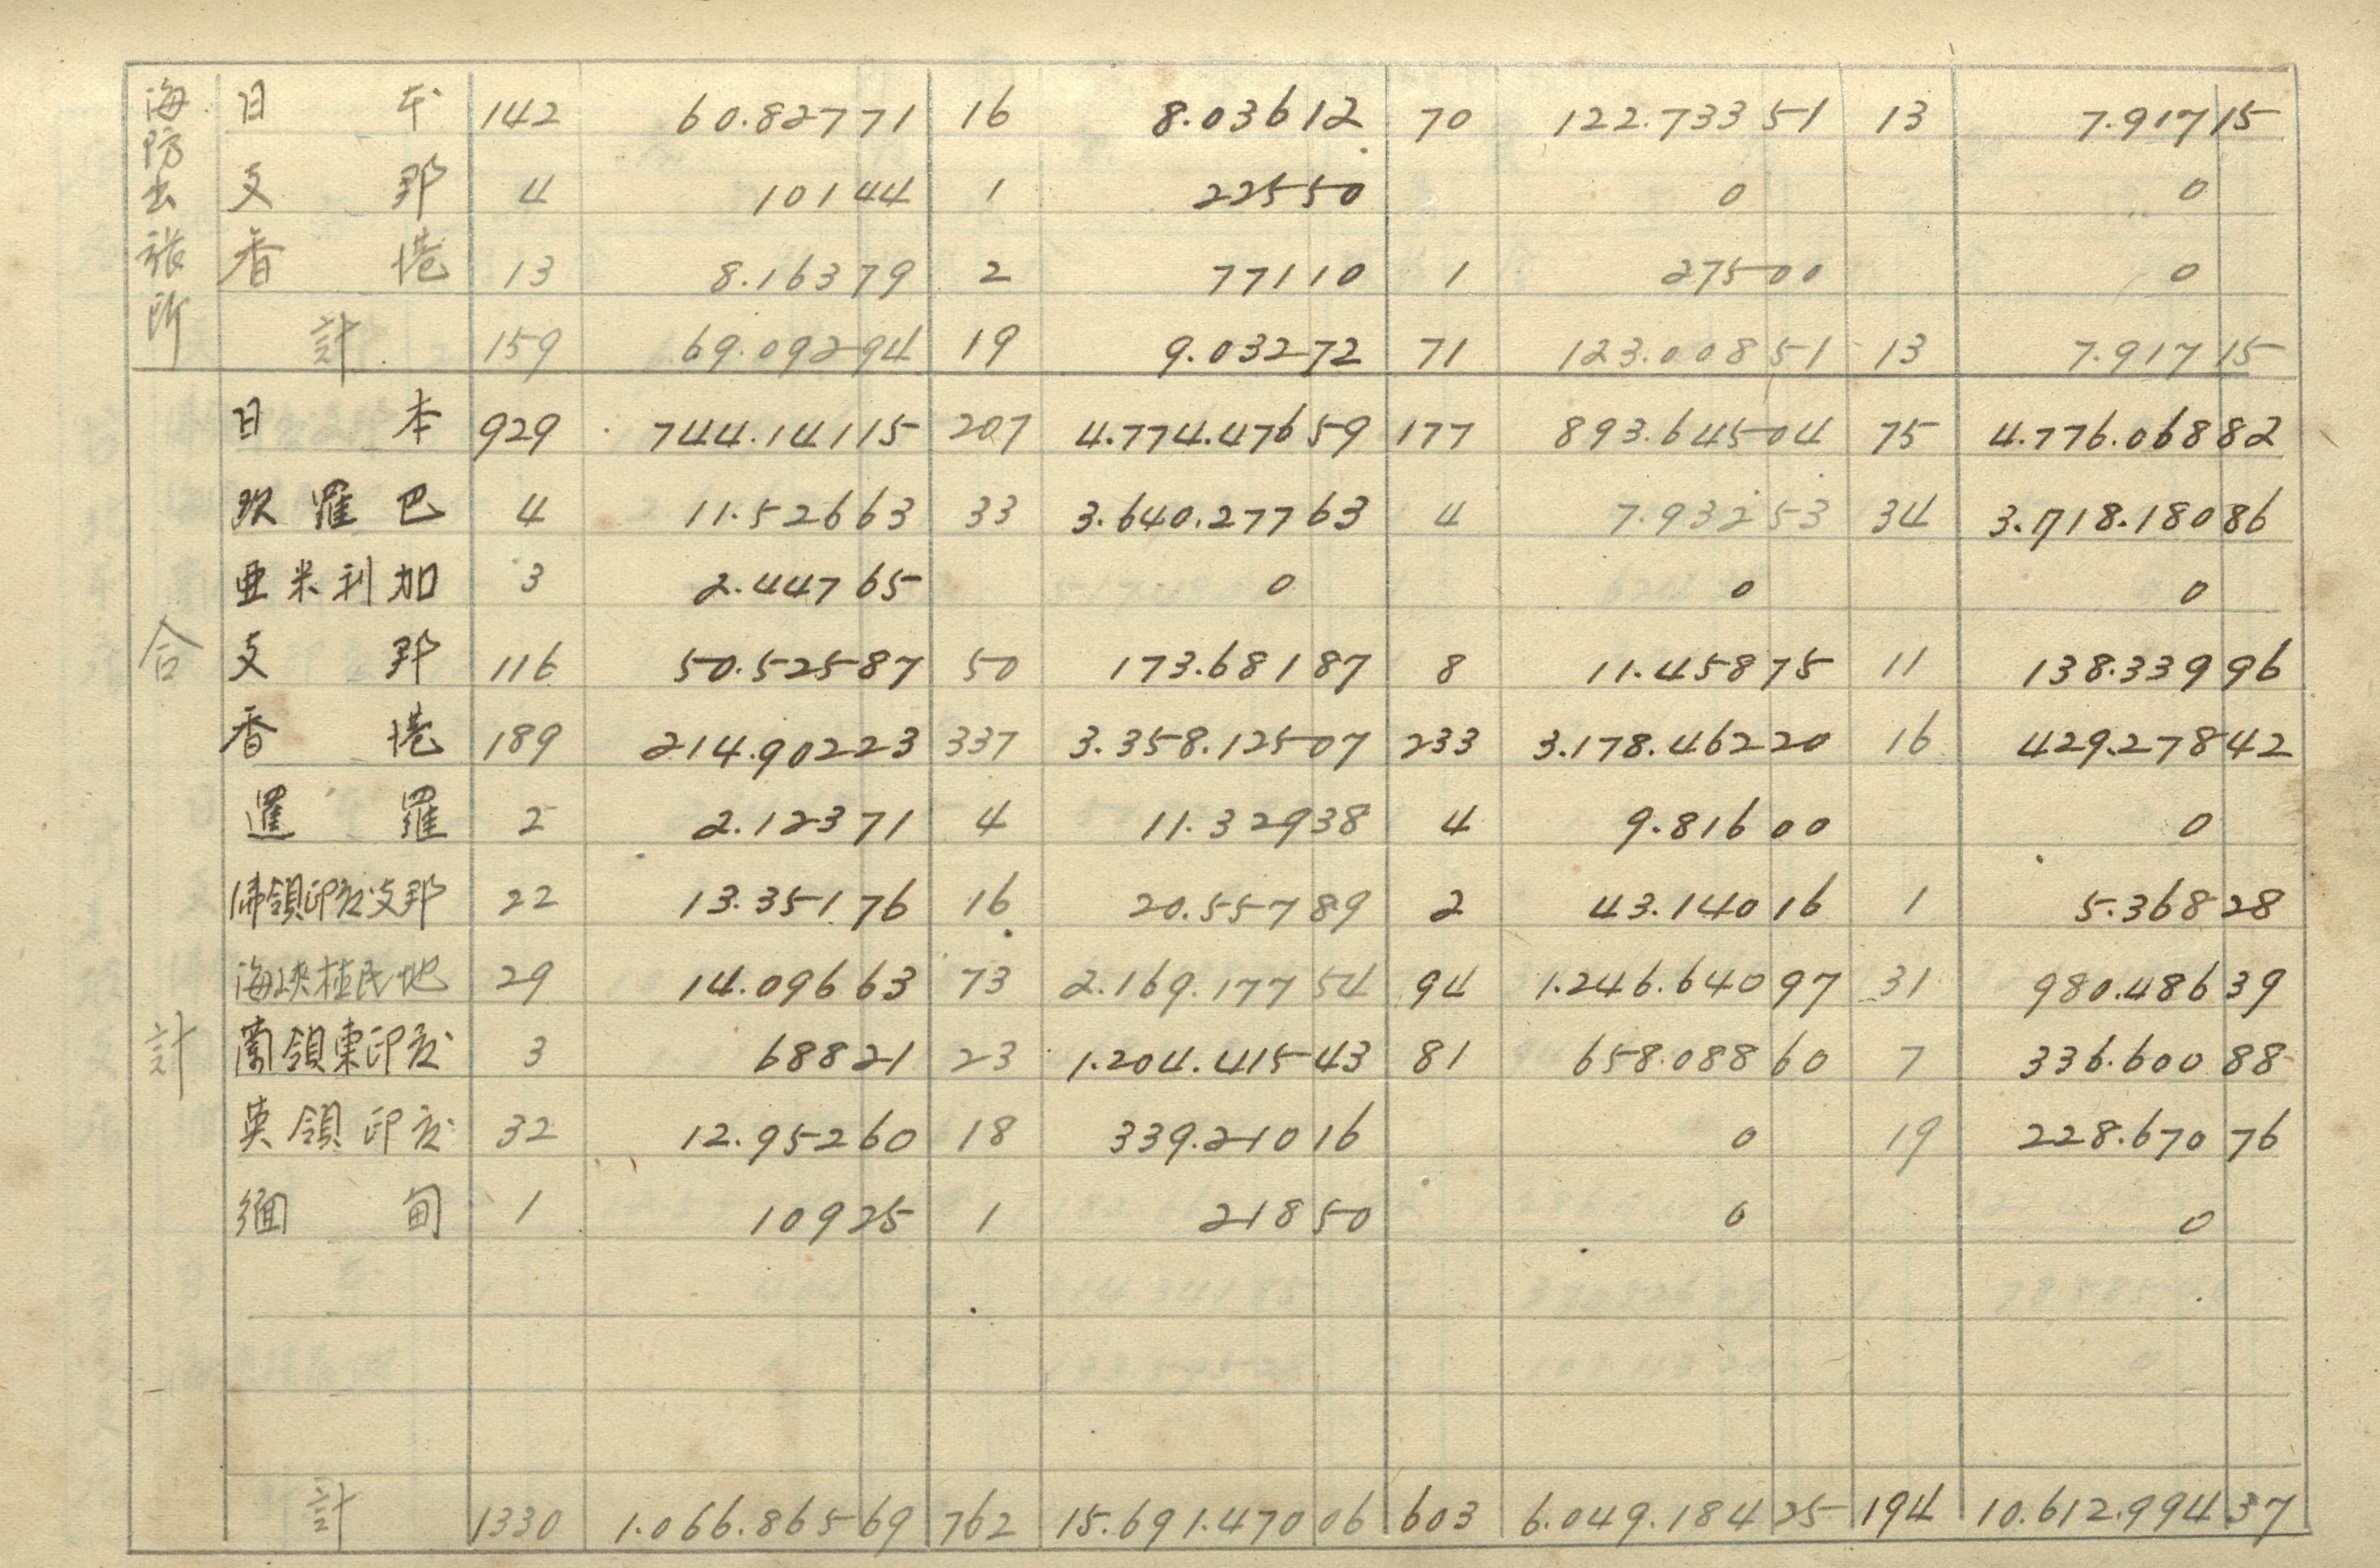 海防出張所
日本 142 60.827 71 16 8.036 12 70 122.733 51 13 7.917 15
支那 4 101 44 1 225 50 0 0
香港 13 8.163 79 2 771 10 1 275 00 0
計 159 69.092 94 19 9.032 72 71 123.008 51 13 7.917 15
合計
日本 929 744.141 15 207 4.774.476 59 177 893.645 04 75 4.776.068 82
欧羅巴 4 11.526 63 33 3.640.277 63 4 7.932 53 34 3.718.180 86
亜米利加 3 2.447 65 0 0 0
支那 116 50.525 87 50 173.681 87 8 11.458 75 11 138.339 96
香港 189 214.902 23 337 3.358.125 07 233 3.178.462 20 16 429.278 42
暹羅 2 2.123 71 4 11.329 38 4 9.816 00 0
佛領印度支那 22 13.351 76 16 20.557 89 2 43.140 16 1 5.368 28
海峡植民地 29 14.096 63 73 2.169.177 54 94 1.246.640 97 31 980.486 39
蘭領東印度 3 688 21 23 1.204.415 43 81 658.088 60 7 336.600 88
英領印度 32 12.952 60 18 339.210 16 0 19 228.670 76
緬甸 1 109 25 1 218 50 0 0
計 1330 1.066.865 69 762 15.691.470 06 603 6.049.184 25 194 10.612.994 37